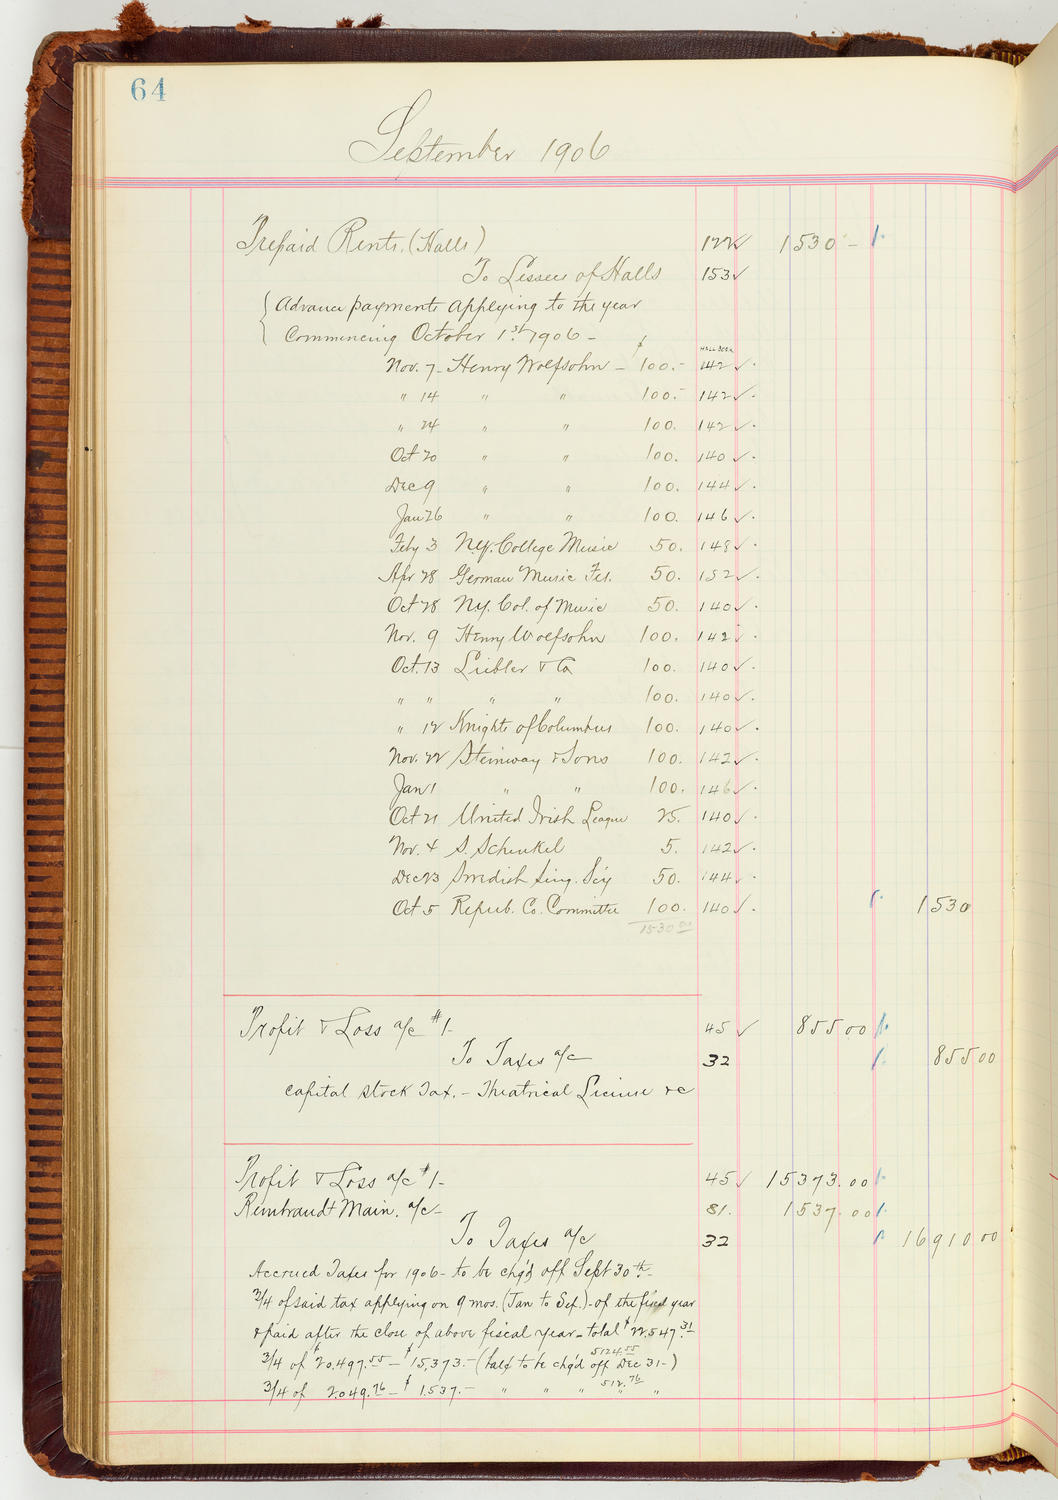 64
September 1906
Prepaid Rents. (Halls) 122 ✓ 1530 -
To Lessees of Halls 153 ✓
Advance payments applying to the year
Commencing October 1st. 1906 - $ HALL BOOK
Nov. 7 - Henry Wolfsohn - 100.- 142 ✓
" 14 " " 100.- 142 ✓
" 24 " " 100. 142 ✓
Oct 20 " " 100. 140 ✓
Dec 9 " " 100. 144 ✓
Jan 26 " " 100. 146 ✓
Feby 3 N.Y. College Music 50. 148 ✓
Apr 28 German Music Fes. 50. 152 ✓
Oct 28 N.Y. Col. of Music 50. 140 ✓
Nov. 9 Henry Wolfsohn 100. 142
Oct. 13 Liebler & Co 100. 140 ✓
" " " " 100. 140 ✓
" 12 Knights of Columbus 100. 140 ✓
Nov. 22 Steinway & Sons 100. 142 ✓
Jan 1 " " 100. 146 ✓
Oct 21 United Irish League 25. 140 ✓
Nov. 4 S. Schenkel 5. 142 ✓
Dec 23 Swedish Sing. Scy 50. 144
Oct 5 Repub. Co. Committee 100. 140 ✓ 1530
1530 00
Profit & Loss a/c #1- 45 ✓ 855 00
To Taxes a/c 32 855 00
Capital Stock Tax. - Theatrical License &c
Profit & Loss a/c #1- 45 ✓ 15373.00
Rembrandt Main. a/c - 81. 1537.00
To Taxes a/c 32 16910 00
Accrued Taxes for 1906 - to be chg'd off Sept 30th. -
3/4 of said tax applying on 9 mos. (Jan to Sep.) - of the fiscal year
& paid after the close of above fiscal year - total $22.547.31
5124.55
3/4 of $20.497.55 - $15,373.- ( to be chg'd off Dec 31 - )
512.76
3/4 of 2.049.76 - $1.537.- " " " " "